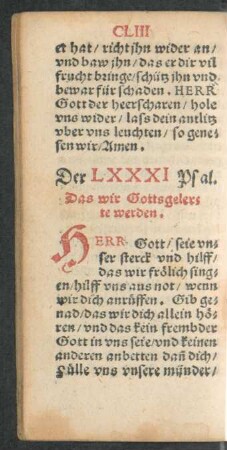 CLIII
et hat/ richt jhn wider an/
vnd baw jhn/ das er dir vil
frucht bringe/ schütz jhn vnd
bewar für schaden. HERR
Gott der heerscharen/ hole
vns wider/ lass dein antlitz
vber vns leuchten/ so gene-
sen wir/ Amen.
Der LXXXI Psal.
Das wir Gottsgeler-
te werden.
HERR Gott/ seie vn-
ser sterck vnd hilff/
das wir frölich sing-
en/ hilff vns aus not/ wenn
wir dich anrüffen. Gib ge-
nad/ das wir dich allein hö-
ren/ vnd das kein frembder
Gott in vns seie/ vnd keinen
anderen anbetten dañ dich/
Fülle vns vnsere münder/